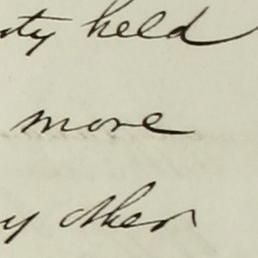 ity held
more
y other